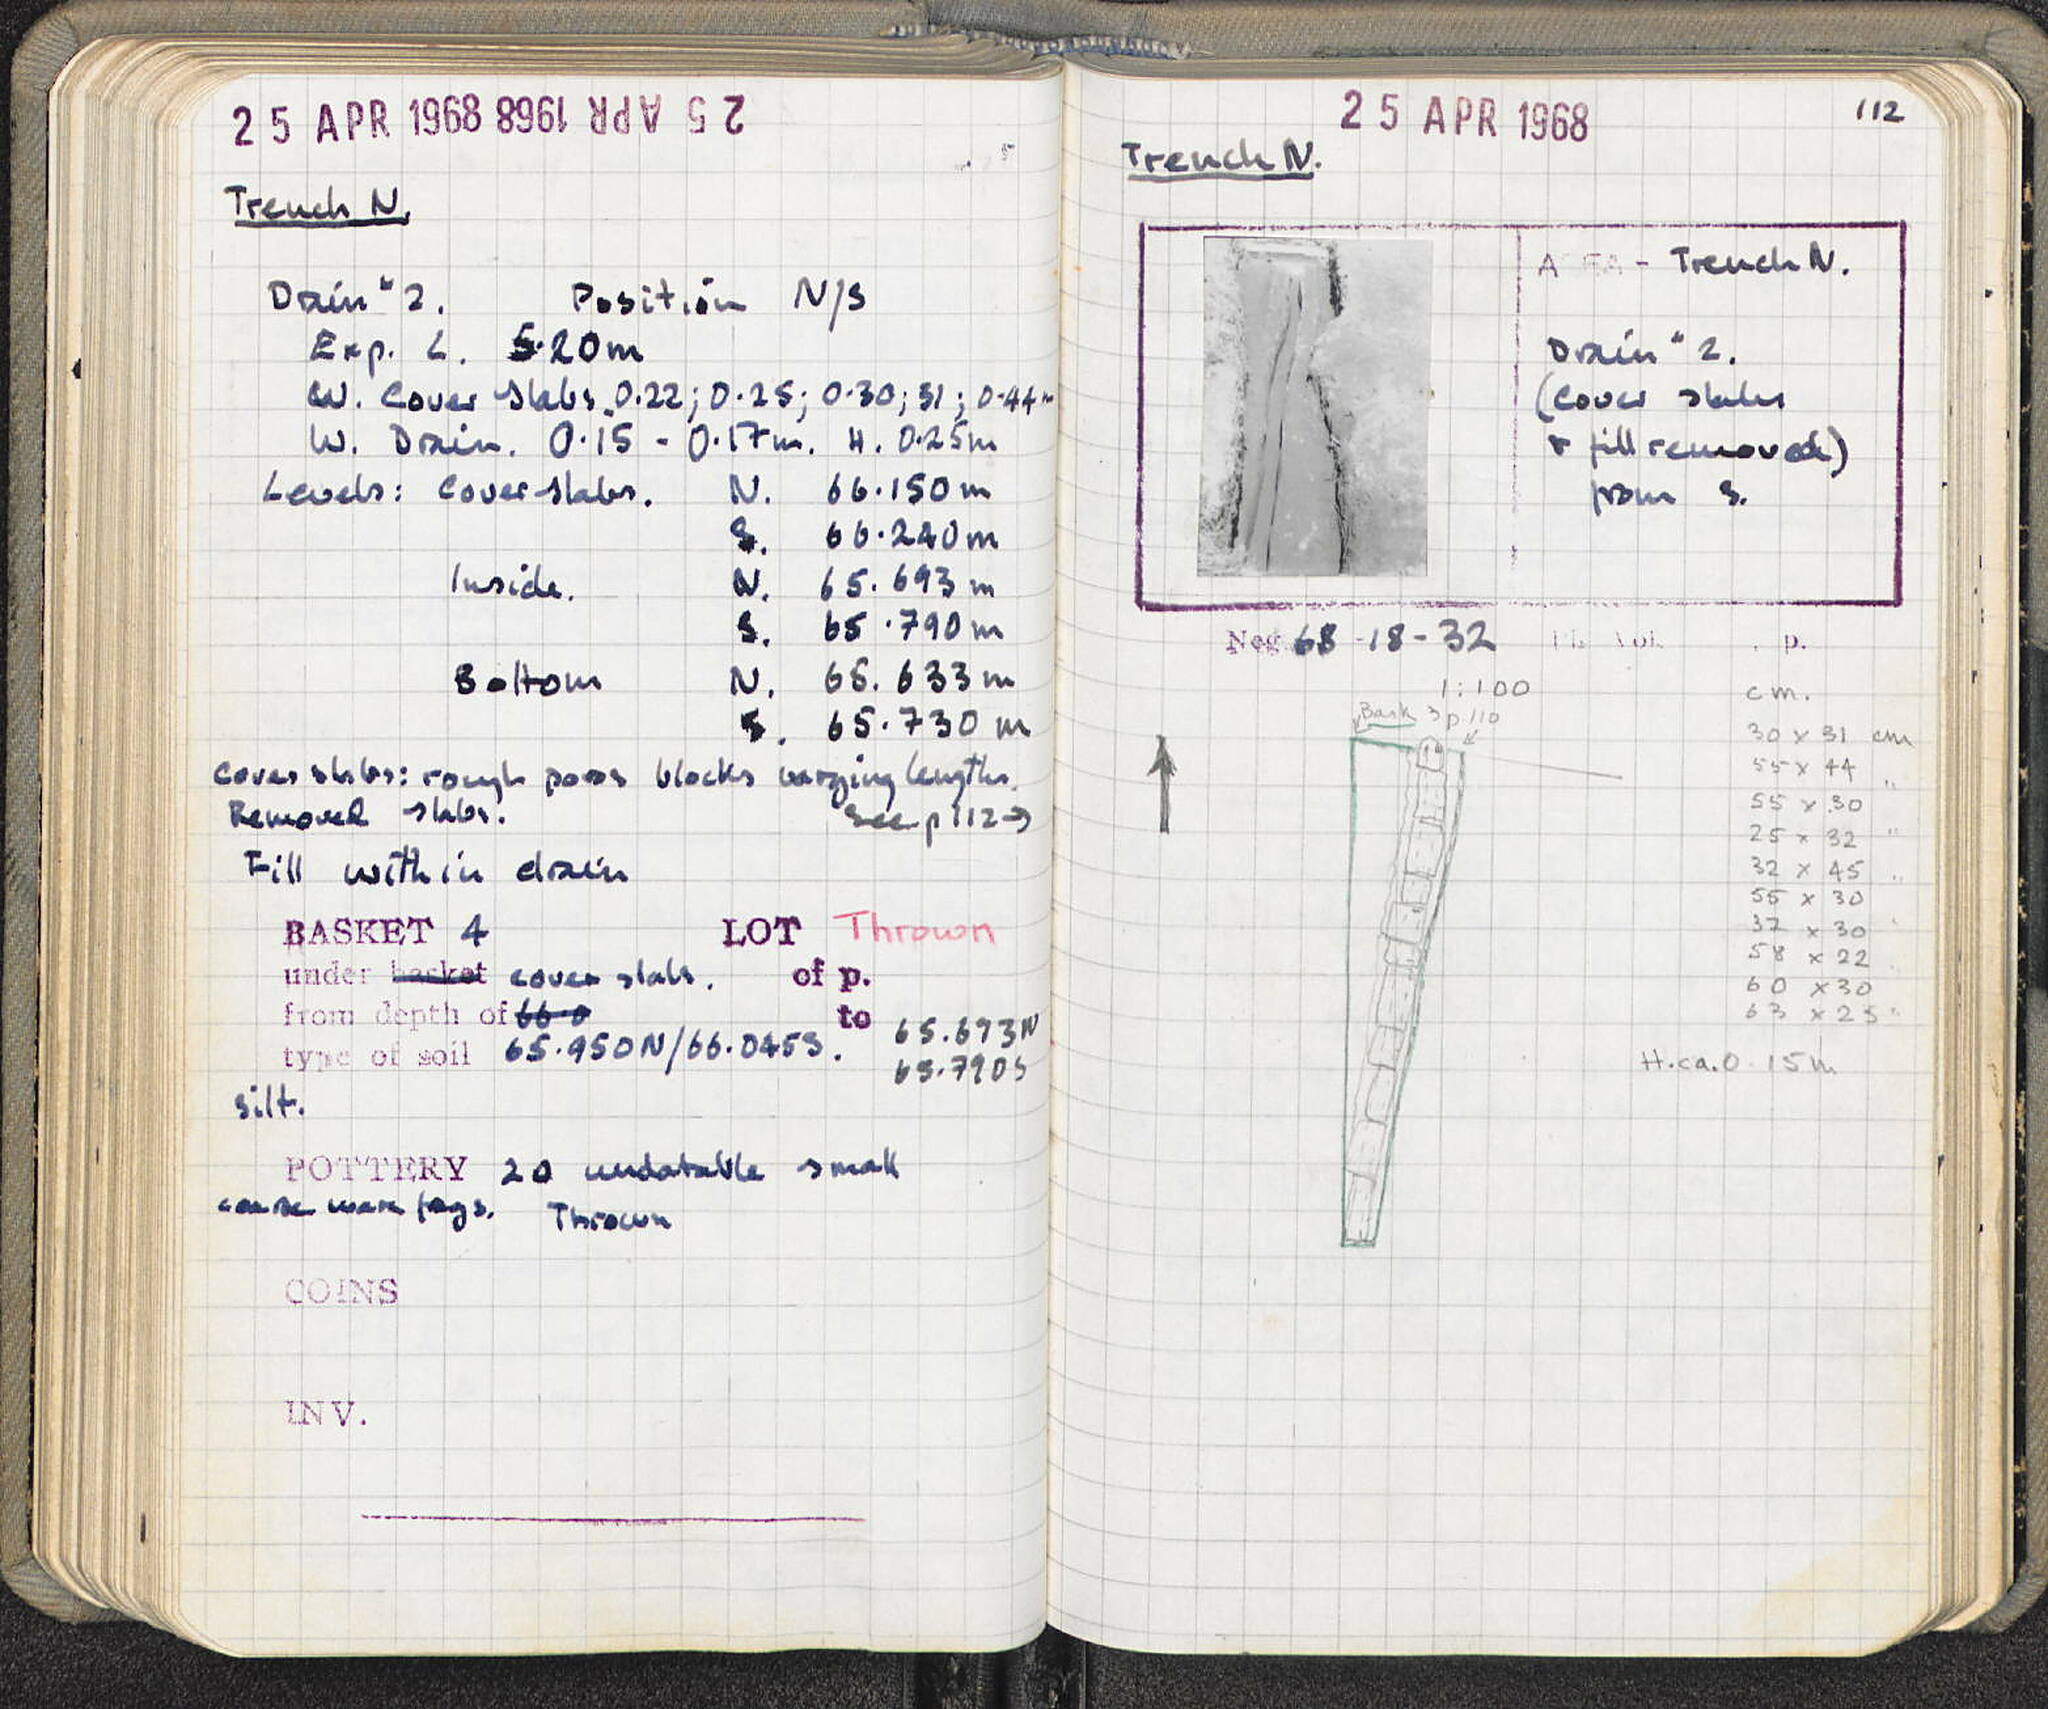 25 APR 1968 25 APR 1968
Trench N.
Drain "2. Position N/S
Exp. L. 5.20m
W. Cover slabs. 0.22; 0.25; 0.30; 31; 0.44m
W. Drain. 0.15 - 0.17m. H. 0.25m
Levels: Cover slabs. N. 66.150m
S. 66.240m
Inside. N. 65.693m
S. 65.790m
Bottom N. 65.633m
S. 65.730m
cover slabs: rough poros blocks varying lengths.
Removed slabs. See p 112→
Fill within drain
BASKET 4 LOT Thrown
under basket cover slabs. of p.
from depth of 66.0 to 65.693N
type of soil 65.950N/66.045S. 65.790S
silt.
POTTERY 20 undatable small
coarse ware frags. Thrown
COINS
INV.
25 APR 1968 112
Trench N.
AREA - Trench N.
Drain "2.
(cover slabs
+ fill removed)
from S.
Neg 68-18-32 Ph. Vol. p.
1:100
Bask 3 p 110
cm.
30 x 31 cm
55 x 44 "
55 x 30
25 x 32 "
32 x 45 "
55 x 30
37 x 30 "
58 x 22
60 x 30
63 x 25 "
H. ca. 0.15m